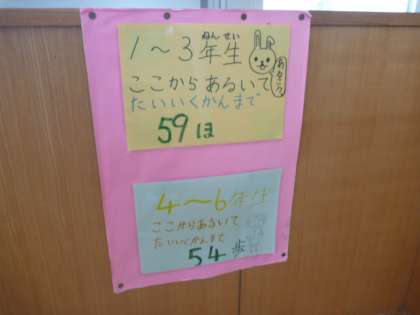 1～3年生
ねん せい
ここからあるいて
たいいくかんまで
59ほ
4～6年生
ここからあるいて
たいいくかんまで
54歩